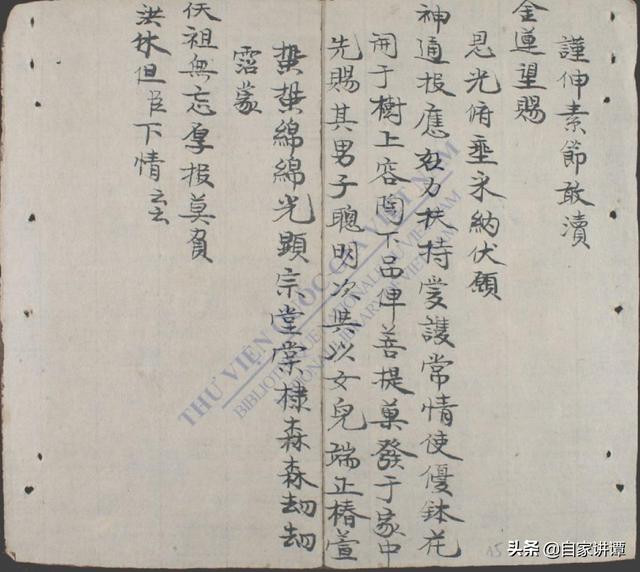 謹伸素節敢瀆
金蓮望賜
恩光俯垂采納伏願
神通报應効力扶持爱護常情使優鉢花
開于樹上容陶下品俾菩提菓發于家中
先賜其男子聰明次其以女兒端正椿萱
綿綿光顯宗堂棠棣森森刼刼
霑蒙
仸祖無忘厚报莫負
洪休但臣下情云云
THƯ VIỆN QUỐC GIA VIỆT NAM
BIBLIOTHÈQUE NATIONALE DU VIETNAM
NATIONAL LIBRARY OF VIETNAM
15
头条 @自家讲谭